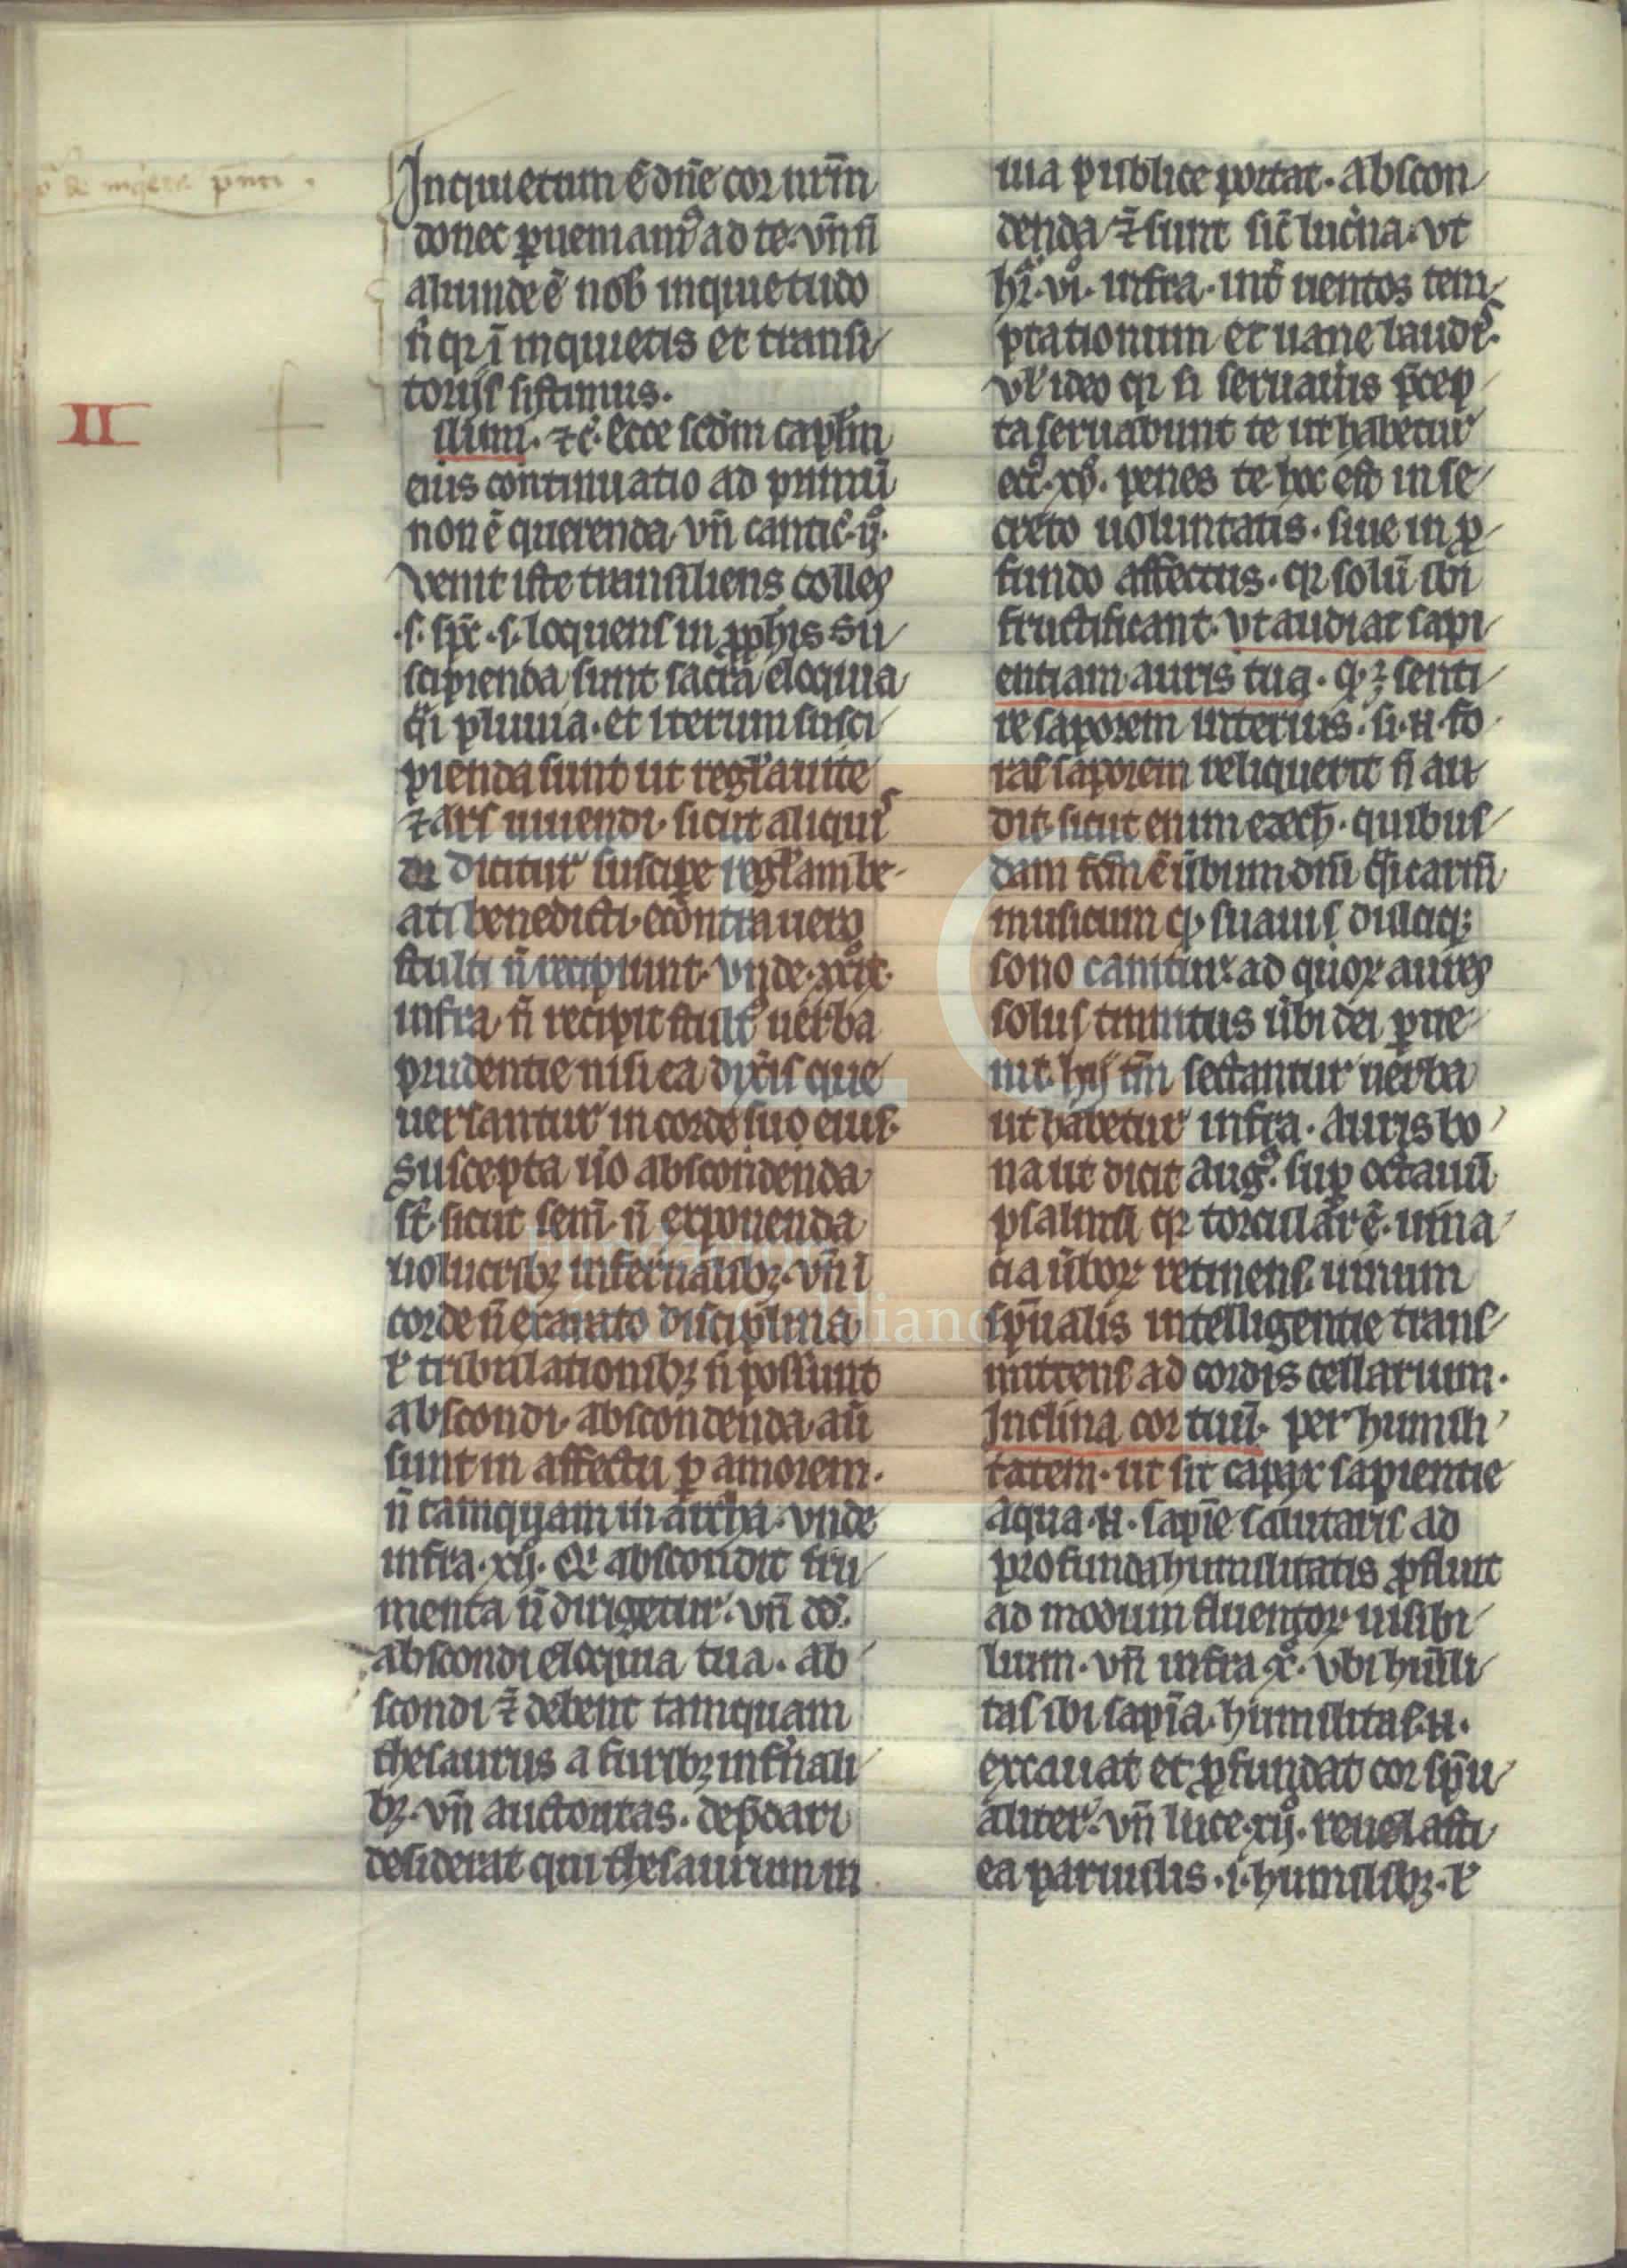 Inquietum ē dn̄e cor nr̄m
donec ꝑueniamꝰ ad te. vn̄ n̄
aliunde ē nob̄ inquietudo
n̄ qꝛ ī inquietis et transi
torijs sistimus.
II
ilium. ⁊c̄. Ecce scd̄m capl̄m
eius continuatio ad primū
non ē querenda. vn̄ cantic̄. ij.
venit iste transiliens colles
.s. sp̄c .s. loquens in ꝓphis. Su
scipienda sunt sacra eloquia
q̄i pluuia. et iterum susci
pienda sunt ut reḡl'a uite
⁊ ars uiuendi. sicut aliquis
dicitur suscipe reḡl'am be
ati benedicti. econtra uero
stulti n̄ recipiunt. vnde
infra. n̄ recipit stultꝰ uerba
prudentie nisi ea dix̄is que
uersantur in corde suo eius.
Suscepta u̇o abscondenda
st̄. sicut sem̄. n̄ exponenda
uolucribꝫ infernalibꝫ. vn̄ ī
corde n̄ exarato disciplina
ł tribulationibꝫ n̄ possunt
abscondi. abscondenda. aū
sunt in affectu ꝑ amorem.
n̄ tamquam in archa. vnde
infra. xj. Qi abscondit fru
menta n̄ dirigetur. vn̄ dd̄.
abscondi eloquia tua. ab
scondi ⁊̄ debent tamquam
thesaurus a furibꝫ infn̄ali
bꝫ. vn̄ auctoritas. dep̄dari
desiderat qui thesaurum in
uia publice portat. abscon
denda ⁊̄ sunt sic̄ luc̄na. ut
hr̄. vi. infra. int̄ uentos tem
ptationum et uane laudis.
vł ideo qꝛ si seruatus p̄cep
ta seruabunt te ut habetur
ecc̄i. xv. penes te hoc est in se
creto uoluntatis. siue in ꝓ
fundo affectus. qꝛ solū ibi
fructificant. vt audiat sapi
entiam auris tua. q.ꝫ senti
re saporem interius. si .n. fo
ras saporem reliquerit n̄ au
dit. sicut enim ezech̄. quibus
dam fcm̄ ē ūbum dn̄i q̄i carm̄
musicum qd̄ suaui dulciqꝫ
sono canitur. ad quoꝝ aures
solus tinnitus ūbi dei ꝑue
nit. hij tn̄ sectantur uerba
ut habetur infra. auris bo
na ut dicit augꝰ. suꝑ octauū
psalmū qꝛ torcular ē. uina
cia ūboꝝ retinens. uinum
sp̄ualis intelligentie trans
mittens ad cordis cellarium.
Inclina cor tuū. per humili
tatem. ut sit capax sapientie
aqua .n. sapīe salutaris ad
profunda humilitatis ꝓfluit
ad modum fluentoꝝ uisibi
lium. vn̄ infra xͦ. vbi hūili
tas ibi sapīa. humilitas .n.
excauat et ꝓfundat cor sp̄u
aliter. vn̄ luce. xij. reuelasti
ea paruulis. i. humilibꝫ. ł
Galdiano